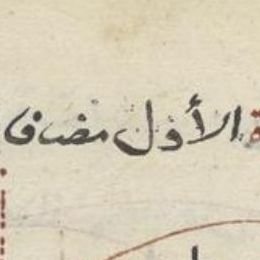 الأول مضاف